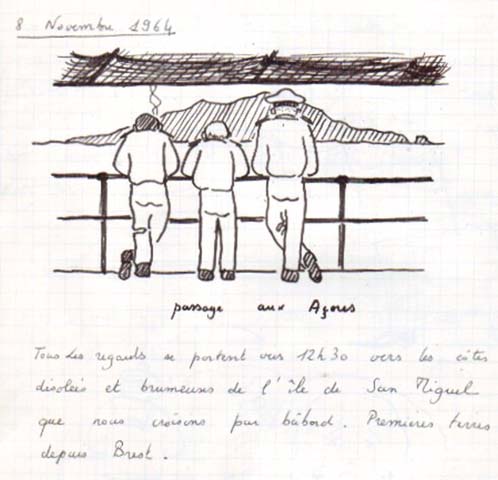 8 Novembre 1964
passage aux Açores
Tous les regards se portent vers 12h30 vers les côtes
désolées et brumeuses de l'île de San Miguel
que nous croisons par bâbord. Premières terres
depuis Brest.